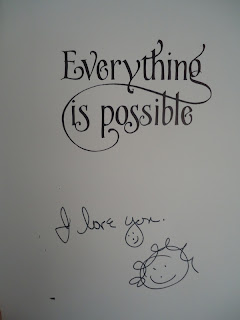 Everything
is possible
I love you.